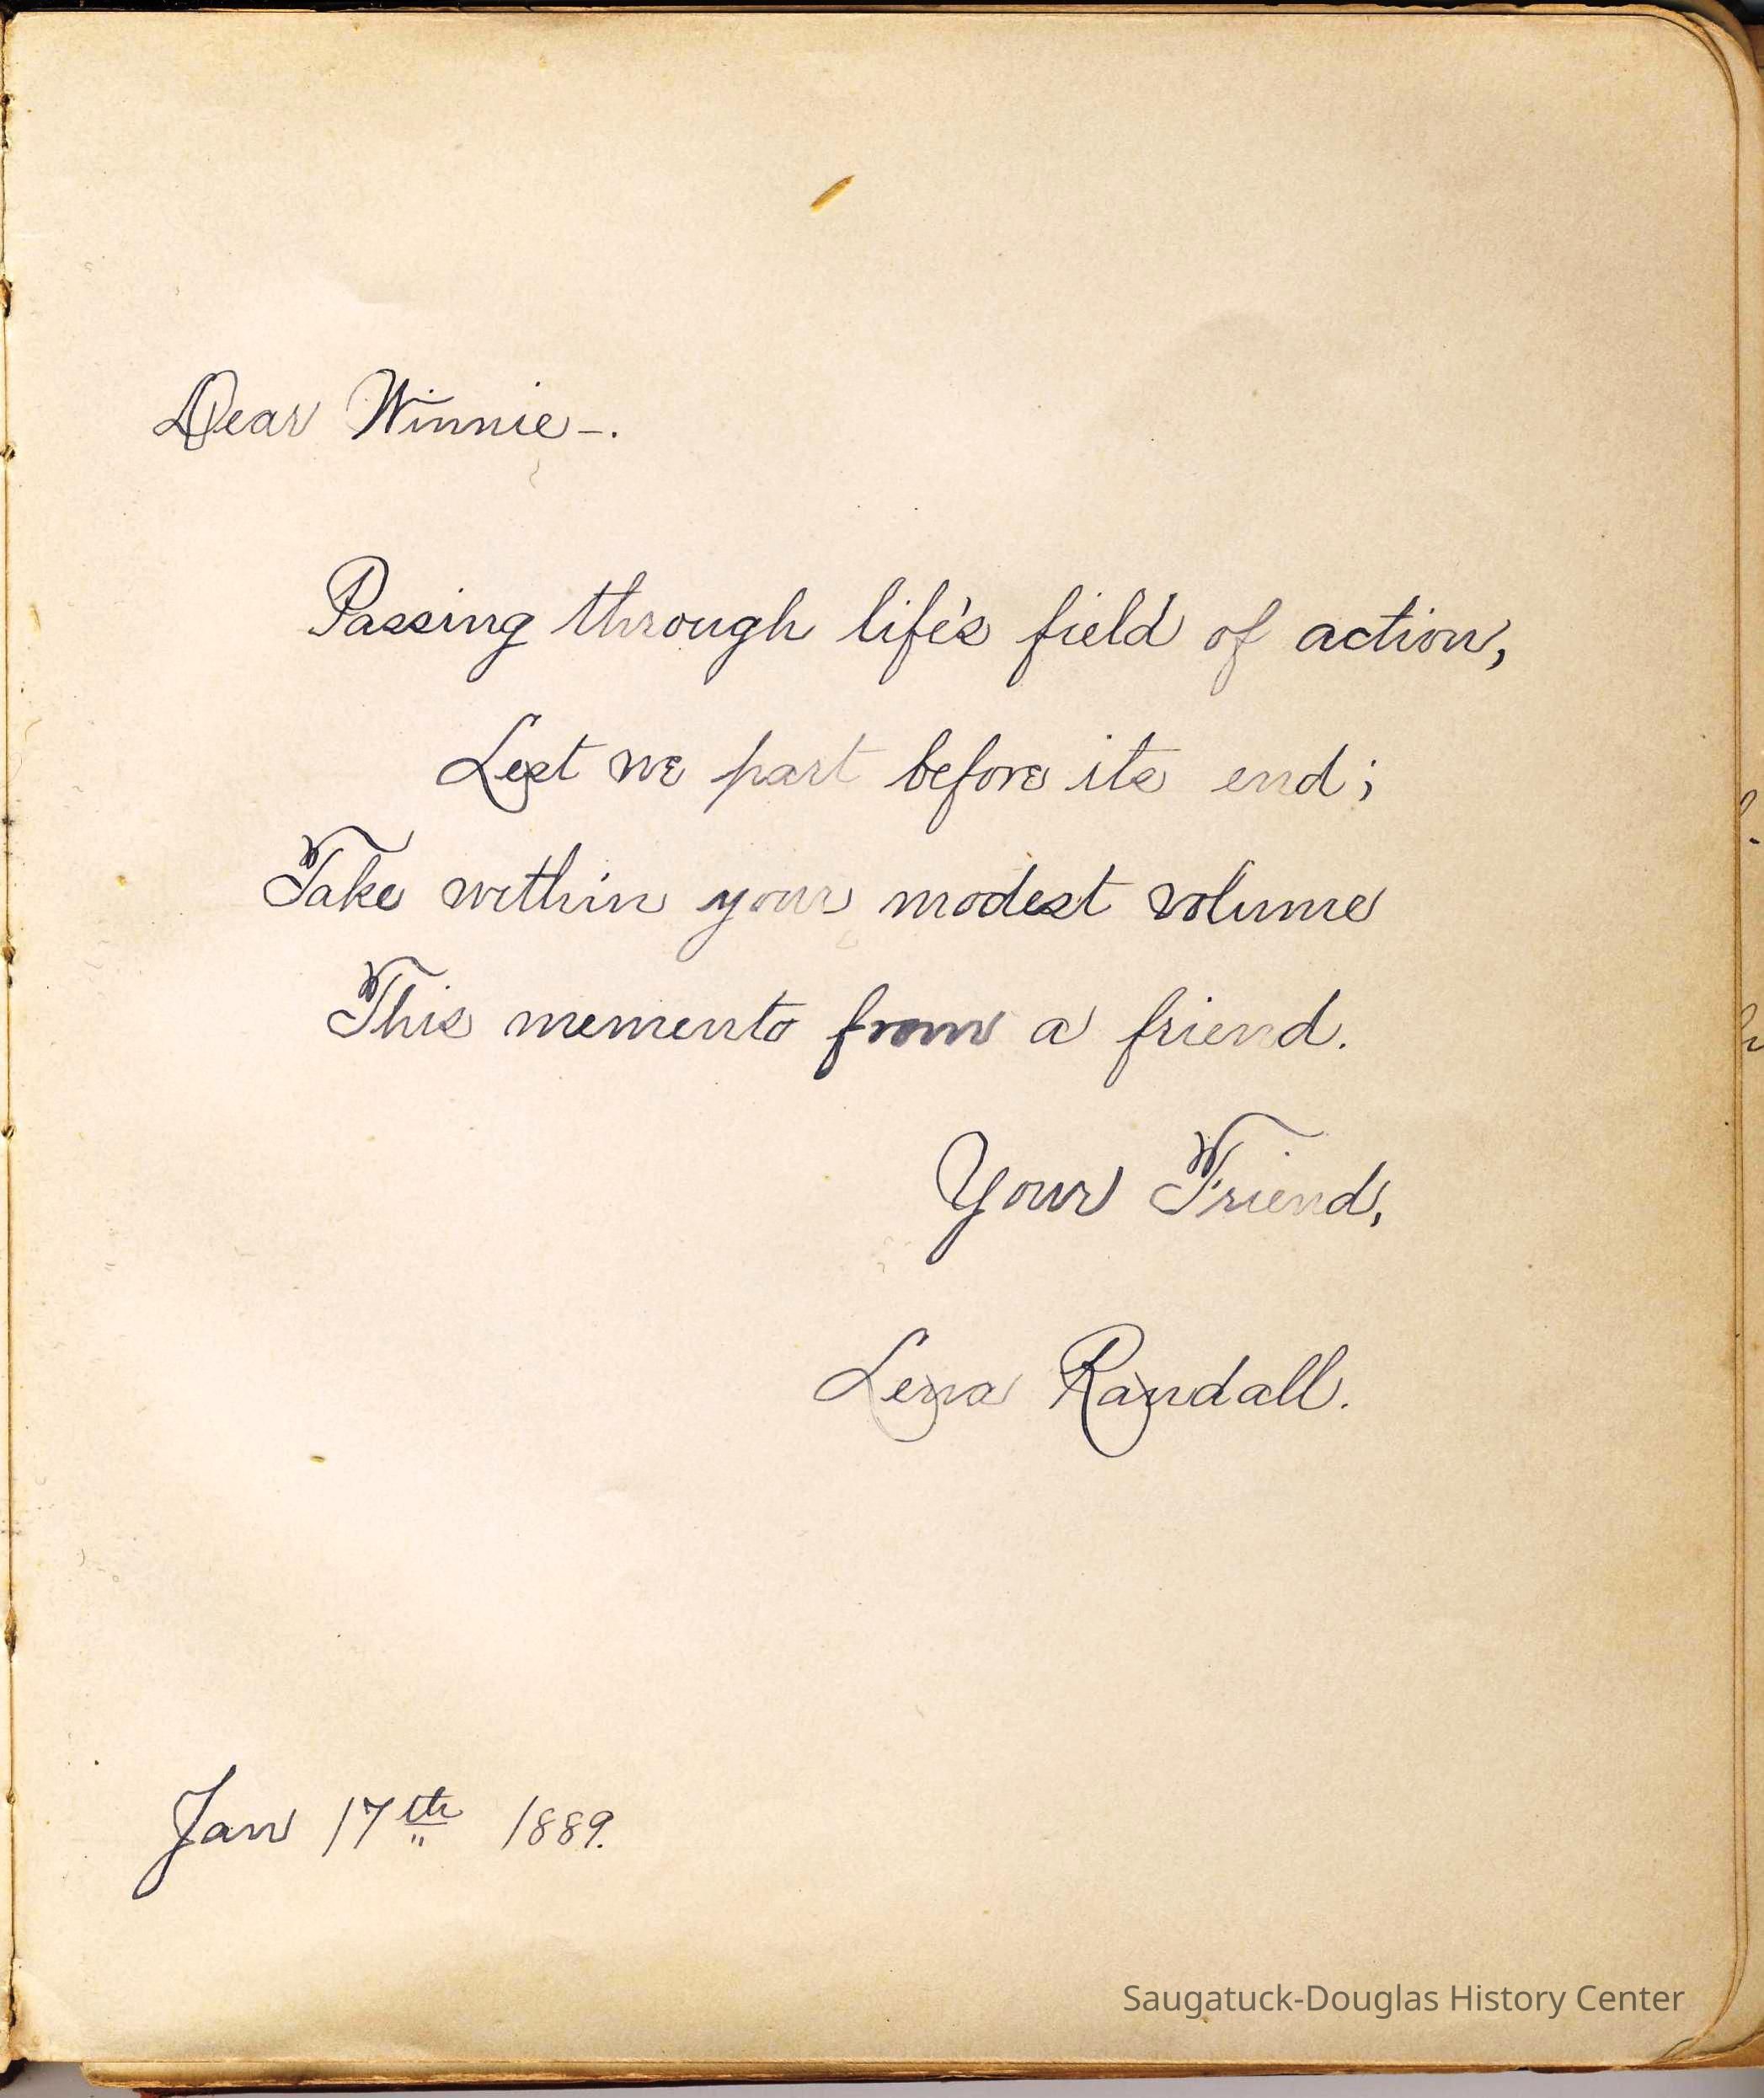 Dear Winnie-.
Passing through life's field of action,
Lest we part before its end;
Take within your modest volume
This memento from a friend.
Your Friend,
Lena Randall.
Jan 17th 1889.
Saugatuck-Douglas History Center